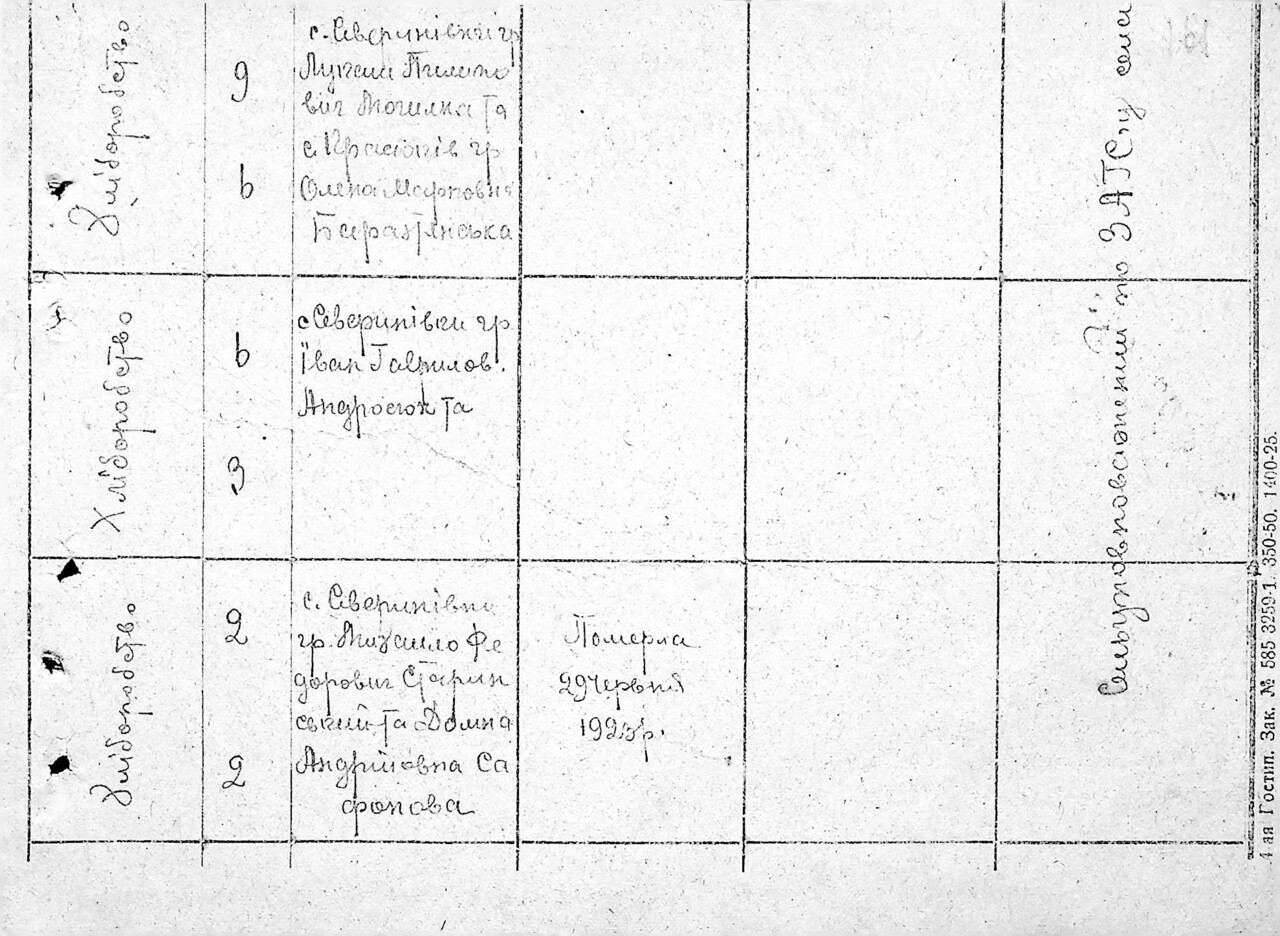 Хліборобство
9
6
с. Северинівки гр
Лукаш Пилипо
вич Могилка та
с. Красногів гр
Олена Марковна
Хліборобство
6
3
с Северинівки гр
Іван Гаврилов.
Андросюк та
Хліборобство
2
2
с. Северинівка
гр. Михаило Фе
дорович Старин
ський та Домна
Андріївна Са
фонова
Померла
29 червня
1925р.
Сельуповноважений по ЗАГС'у села
4-ая Гостип. Зак. № 585 3259-1. 350-50. 1400-25.